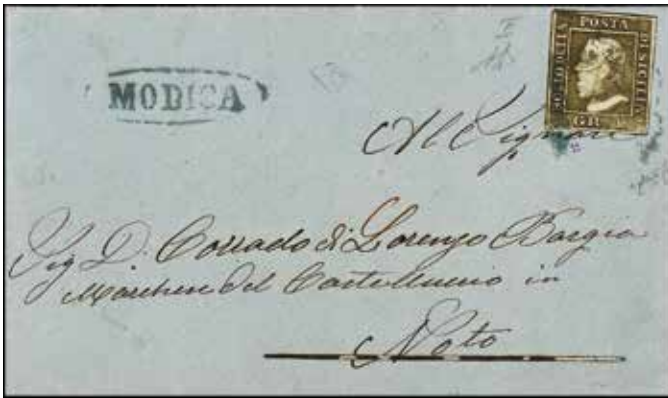 BOLLO DELLA
POSTA
DI SICILIA
GR
MODICA
Al Signor
Sig D. Corrado di Lorenzo Borgia
Marchese del Castelluccio in
Noto